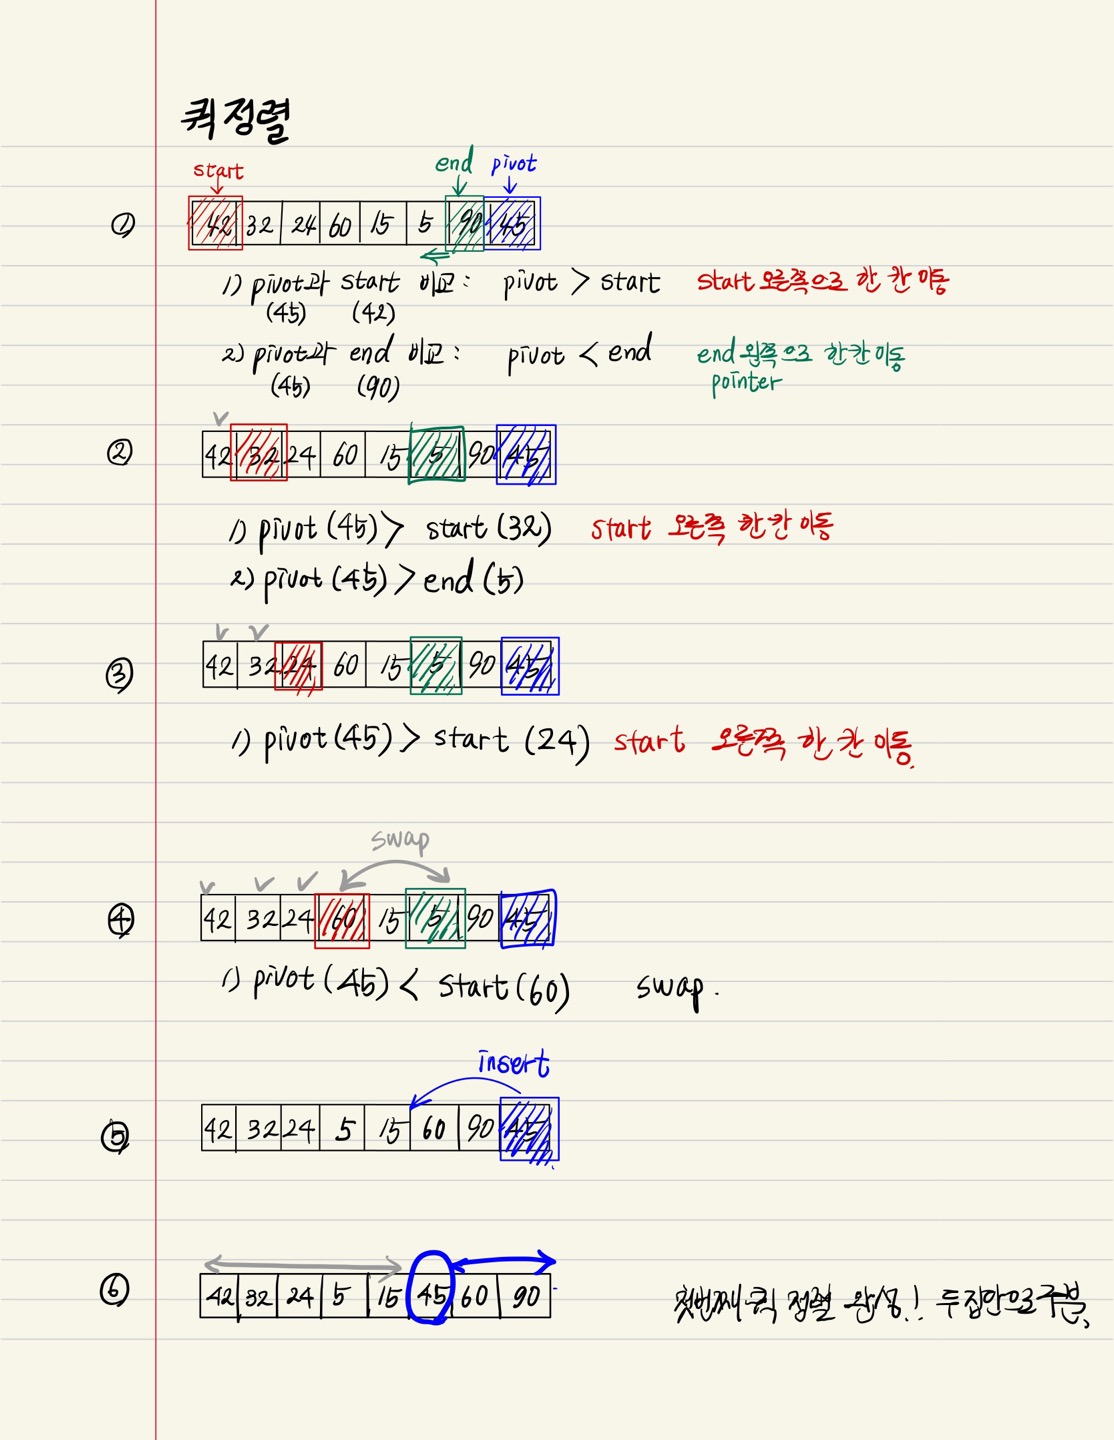 퀵정렬
start end pivot
① 42 32 24 60 15 5 90 45
1) pivot과 start 비교: pivot > start start 오른쪽으로 한 칸 이동
(45) (42)
2) pivot과 end 비교: pivot < end end 왼쪽으로 한 칸 이동
(45) (90) pointer
② 42 32 24 60 15 5 90 45
1) pivot(45) > start (32) start 오른쪽 한 칸 이동
2) pivot(45) > end (5)
③ 42 32 24 60 15 5 90 45
1) pivot(45) > start (24) start 오른쪽 한 칸 이동.
swap
④ 42 32 24 60 15 5 90 45
1) pivot(45) < start(60) swap.
insert
⑤ 42 32 24 5 15 60 90 45
⑥ 42 32 24 5 15 45 60 90
첫번째 퀵 정렬 완성! 두 집만으로 구분.